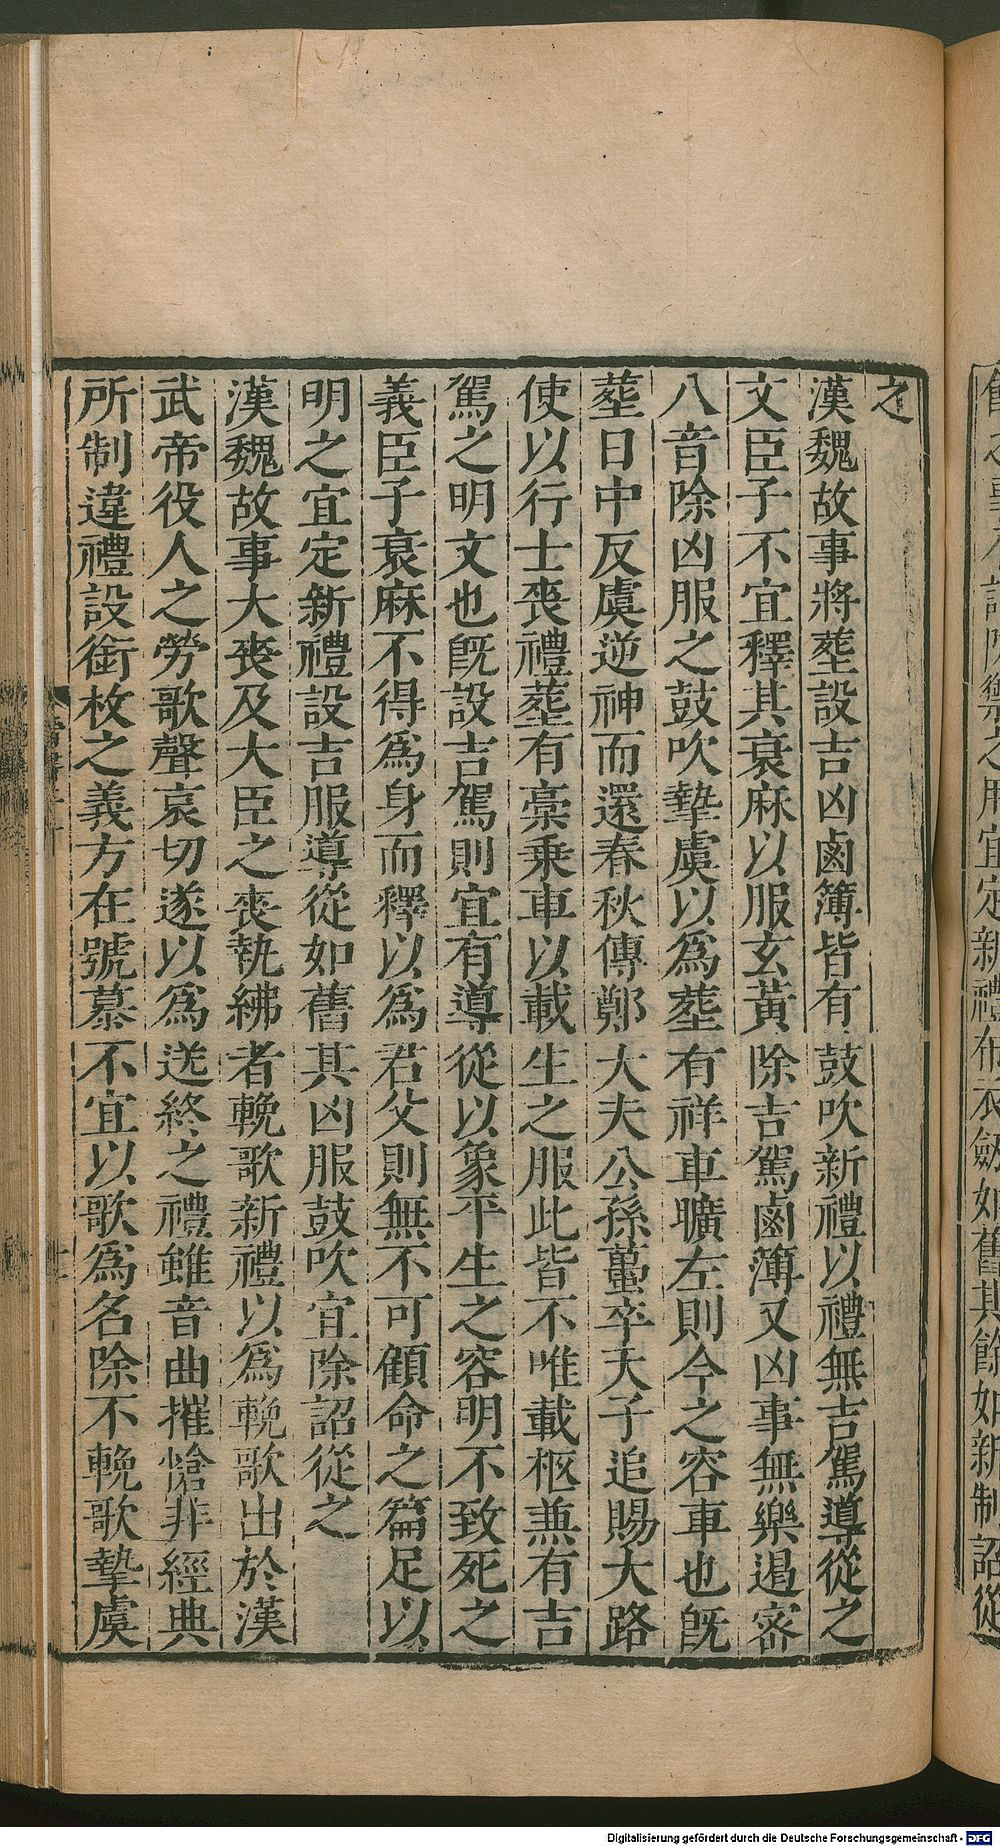 之
漢魏故事將塟設吉凶鹵簿皆有鼓吹新禮以禮無吉駕導從之
文臣子不宜釋其衰麻以服玄黃除吉駕鹵簿又凶事無樂遏宻
八音除凶服之鼓吹摯虞以爲塟有祥車曠左則今之容車也旣
塟日中反虞逆神而還春秋傳鄭大夫公孫蠆卒天子追賜大路
使以行士喪禮塟有槀乗車以載生之服此皆不唯載柩兼有吉
駕之明文也旣設吉駕則宜有導從以象平生之容明不致死之
義臣子衰麻不得爲身而釋以爲君父則無不可顧命之篇足以
明之宜定新禮設吉服導從如舊其凶服鼓吹宜除詔從之
漢魏故事大喪及大臣之喪執紼者輓歌新禮以爲輓歌出於漢
武帝役人之勞歌聲哀切遂以爲送終之禮雖音曲摧愴非經典
所制違禮設銜枚之義方在號慕不宜以歌爲名除不輓歌摯虞
Digitalisierung gefördert durch die Deutsche Forschungsgemeinschaft - DFG